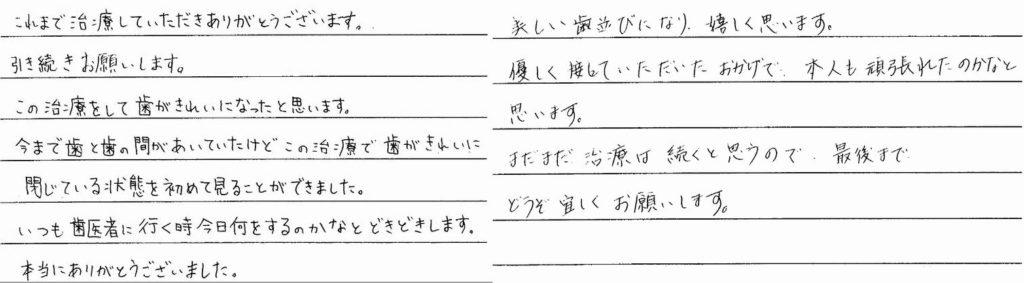 これまで治療していただきありがとうございます。
引き続きお願いします。
この治療をして歯がきれいになったと思います。
今まで歯と歯の間があいていたけどこの治療で歯がきれいに
閉じている状態を初めて見ることができました。
いつも歯医者に行く時今日何をするのかなとどきどきします。
本当にありがとうございました。
美しい歯並びになり、嬉しく思います。
優しく接していただいたおかげで、本人も頑張れたのかなと
思います。
まだまだ治療は続くと思うので、最後まで
どうぞ宜しくお願いします。